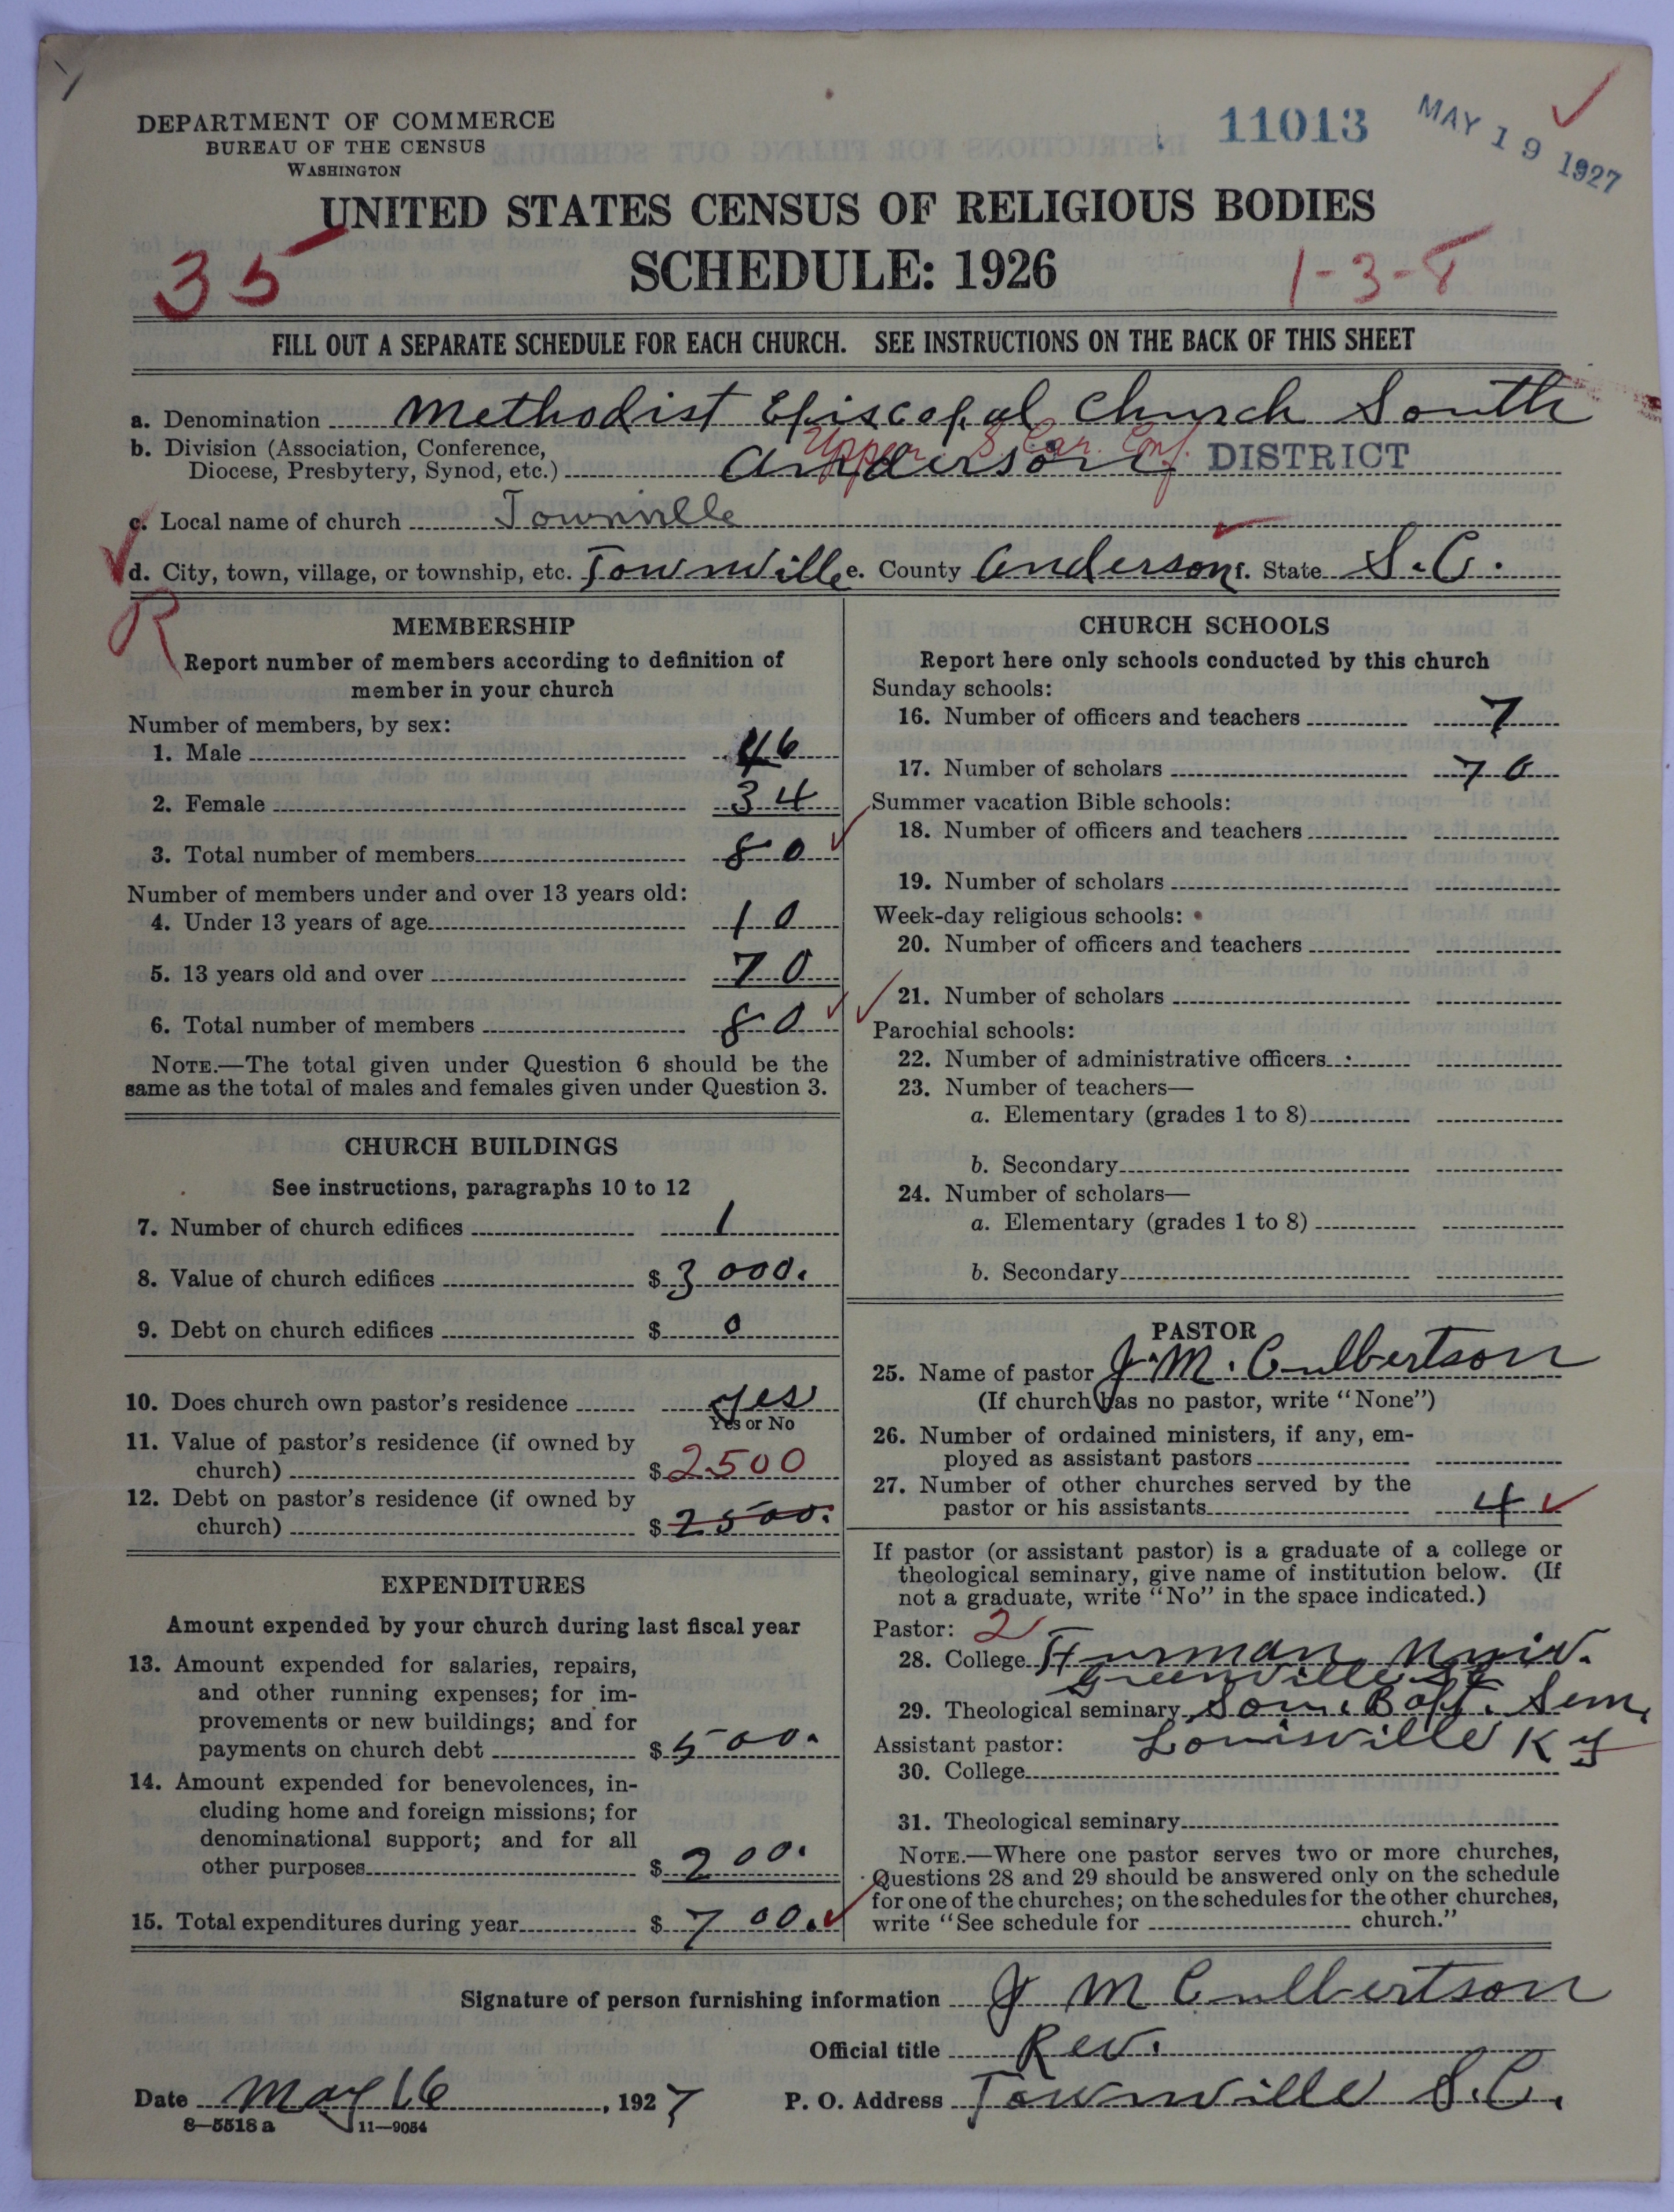 DEPARTMENT OF COMMERCE
BUREAU OF THE CENSUS
WASHINGTON
11013
MAY 19 1927
UNITED STATES CENSUS OF RELIGIOUS BODIES
SCHEDULE: 1926
35
1-3-8
FILL OUT A SEPARATE SCHEDULE FOR EACH CHURCH. SEE INSTRUCTIONS ON THE BACK OF THIS SHEET
a. Denomination Methodist Episcopal Church South
b. Division (Association, Conference,
Diocese, Presbytery, Synod, etc.) Anderson DISTRICT
Upper S Car. Conf.
c. Local name of church Townville
d. City, town, village, or township, etc. Townville e. County Anderson f. State S.C.
R
MEMBERSHIP
Report number of members according to definition of
member in your church
Number of members, by sex:
1. Male 46
2. Female 34
3. Total number of members 80
Number of members under and over 13 years old:
4. Under 13 years of age 10
5. 13 years old and over 70
6. Total number of members 80
NOTE.—The total given under Question 6 should be the
same as the total of males and females given under Question 3.
CHURCH BUILDINGS
See instructions, paragraphs 10 to 12
7. Number of church edifices 1
8. Value of church edifices $3000.
9. Debt on church edifices $ 0
10. Does church own pastor's residence yes
Yes or No
11. Value of pastor's residence (if owned by
church) $2500
12. Debt on pastor's residence (if owned by
church) $2500.
EXPENDITURES
Amount expended by your church during last fiscal year
13. Amount expended for salaries, repairs,
and other running expenses; for im-
provements or new buildings; and for
payments on church debt $500.
14. Amount expended for benevolences, in-
cluding home and foreign missions; for
denominational support; and for all
other purposes $200.
15. Total expenditures during year $700.
CHURCH SCHOOLS
Report here only schools conducted by this church
Sunday schools:
16. Number of officers and teachers 7
17. Number of scholars 70
Summer vacation Bible schools:
18. Number of officers and teachers
19. Number of scholars
Week-day religious schools:
20. Number of officers and teachers
21. Number of scholars
Parochial schools:
22. Number of administrative officers
23. Number of teachers—
a. Elementary (grades 1 to 8)
b. Secondary
24. Number of scholars—
a. Elementary (grades 1 to 8)
b. Secondary
PASTOR
25. Name of pastor J. M. Culbertson
(If church has no pastor, write "None")
26. Number of ordained ministers, if any, em-
ployed as assistant pastors
27. Number of other churches served by the
pastor or his assistants 4
If pastor (or assistant pastor) is a graduate of a college or
theological seminary, give name of institution below. (If
not a graduate, write "No" in the space indicated.)
Pastor: 2
28. College Furman Univ.
Greenville SC
29. Theological seminary Sou. Bapt. Sem,
Assistant pastor: Louisville Ky
30. College
31. Theological seminary
NOTE.—Where one pastor serves two or more churches,
Questions 28 and 29 should be answered only on the schedule
for one of the churches; on the schedules for the other churches,
write "See schedule for church."
Signature of person furnishing information J M Culbertson
Official title Rev.
Date May 16, 1927 P. O. Address Townville S.C.
8—5518 a 11—9054